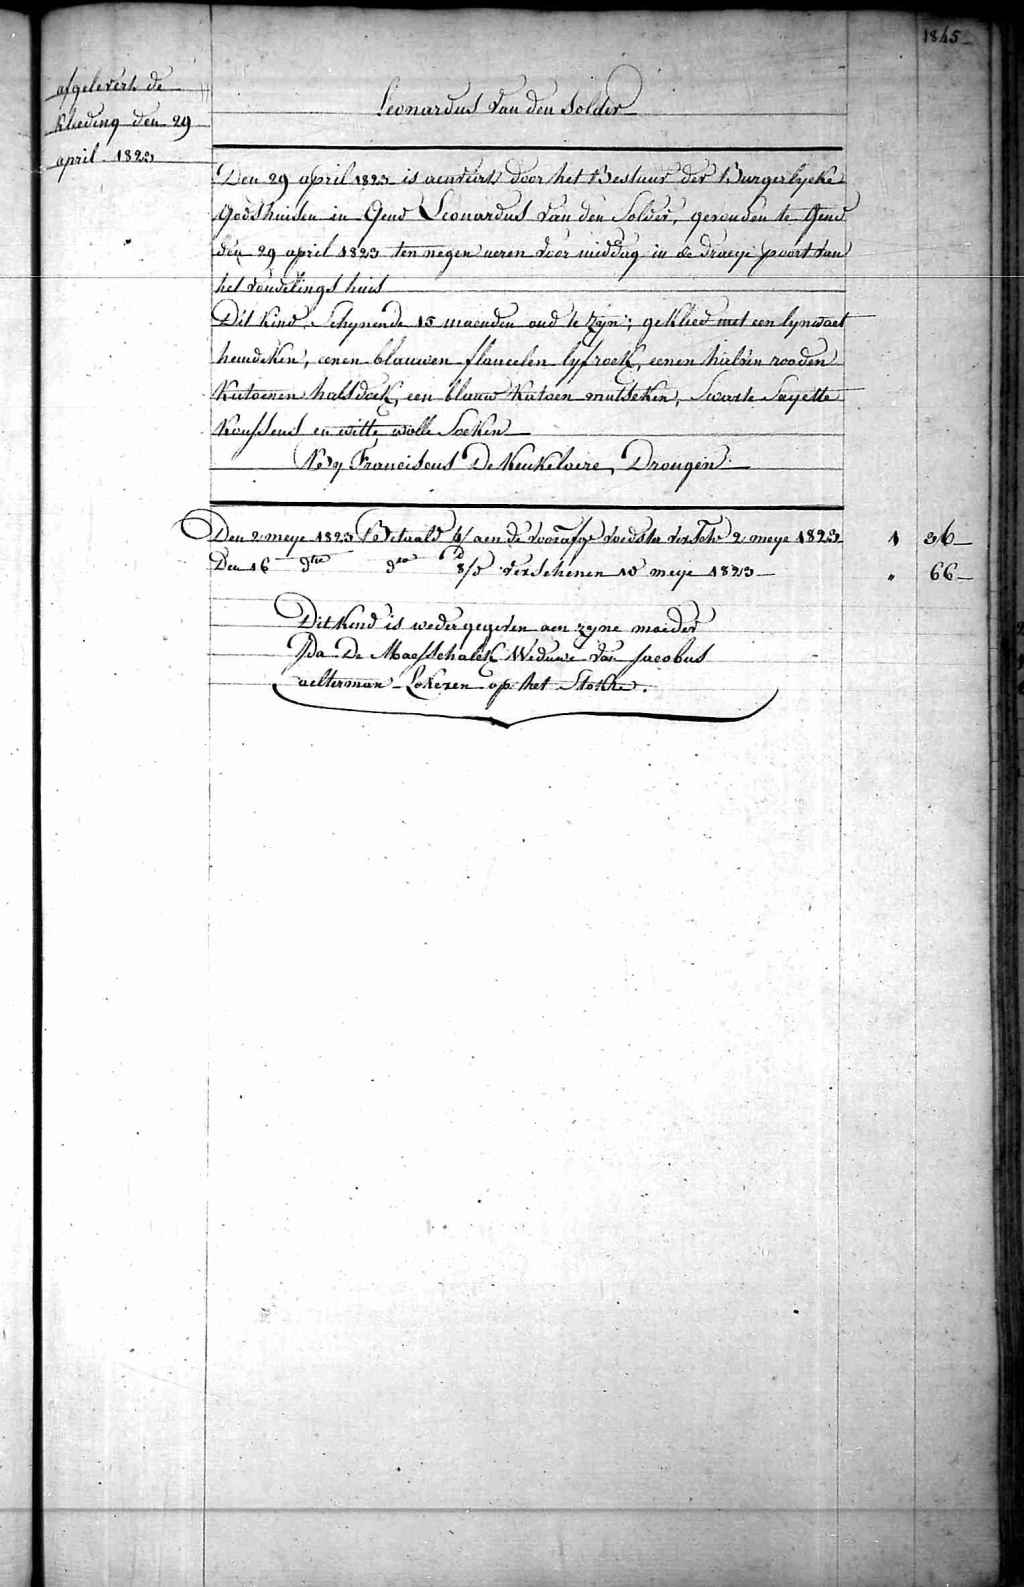 1845
afgelevert de
kleeding den 29
april 1823
Leonardus Van den Solder
Den 29 april 1823 is aenveirt door het Bestuur der Burgerlycke
Godshuisen in Gend Leonardus Van den Solder, gevonden te Gend
den 29 april 1823 ten negen ueren voor middag in de draeye poort van
het vondelings huis
Dit kind, Schynende 15 maenden oud te zyn; gekleed met een lynwaet
hemdeken, eenen blauwen flanelen lyfrock, eenen rooden
Katoenen halsdoek, een blauw Katoen mutseken, Swarte Sayette
Koussens en witte wolle Socken
By Franciscus De Keukelaire, Drongen
Den 2 meye 1823 Betaald aen de voedster versch. 2 meye 1823 1 36
Den 16 dito do verschenen 15 meye 1823 " 66
Dit Kind is wedergegeven aen zyne moeder
Ida De Maesschalck Weduwe van Jacobus
aelterman Lokeren op het Stokke.